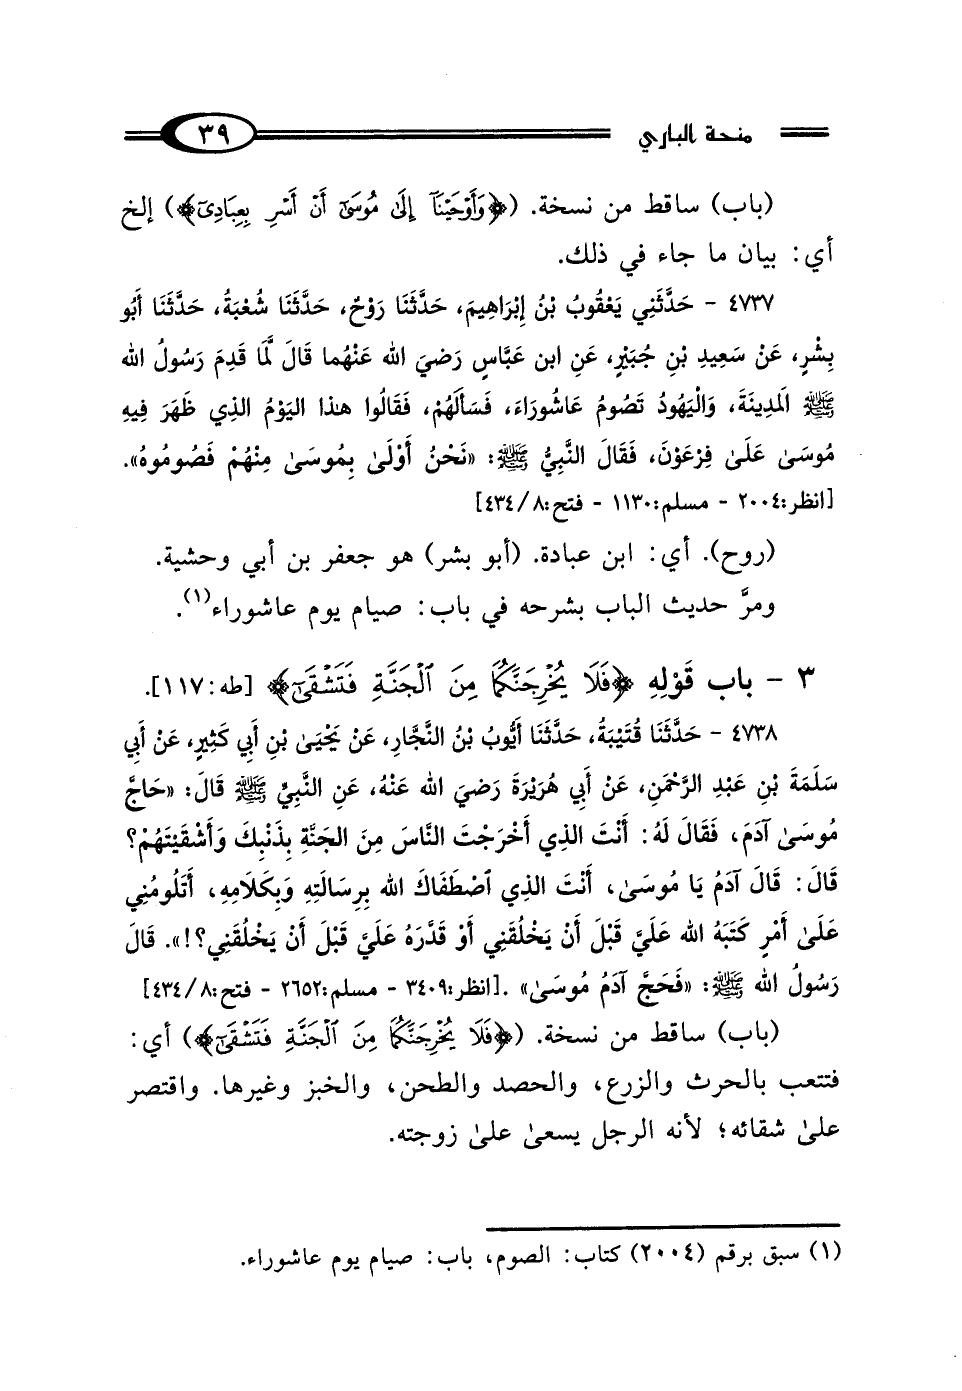 منحة الباري ٣٩
(باب) ساقط من نسخة. (﴿وَأَوْحَيْنَآ إِلَىٰ مُوسَىٰٓ أَنْ أَسْرِ بِعِبَادِىٓ﴾) إلخ
أي: بيان ما جاء في ذلك.
٤٧٣٧ - حَدَّثَنِي يَعْقُوبُ بْنُ إِبْرَاهِيمَ، حَدَّثَنَا رَوْحٌ، حَدَّثَنَا شُعْبَةُ، حَدَّثَنَا أَبُو
بِشْرٍ، عَنْ سَعِيدِ بْنِ جُبَيْرٍ، عَنِ ابن عَبَّاسٍ رَضيَ الله عَنْهُما قَالَ لَمَّا قَدِمَ رَسُولُ الله
ﷺ المَدِينَةَ، وَالْيَهُودُ تَصُومُ عَاشُورَاءَ، فَسَأَلَهُمْ، فَقَالُوا هذا اليَوْمُ الذِي ظَهَرَ فِيهِ
مُوسَىٰ عَلَىٰ فِرْعَوْنَ، فَقَالَ النَّبِيُّ ﷺ: «نَحْنُ أَوْلَىٰ بِمُوسَىٰ مِنْهُمْ فَصُومُوهُ».
[انظر:٢٠٠٤ - مسلم:١١٣٠ - فتح:٤٣٤/٨]
(روح). أي: ابن عبادة. (أبو بشر) هو جعفر بن أبي وحشية.
ومرَّ حديث الباب بشرحه في باب: صيام يوم عاشوراء(١).
٣ - باب قَوْلِهِ ﴿فَلَا يُخْرِجَنَّكُمَا مِنَ ٱلْجَنَّةِ فَتَشْقَىٰٓ﴾ [طه:١١٧].
٤٧٣٨ - حَدَّثَنَا قُتَيْبَةُ، حَدَّثَنَا أَيُّوبُ بْنُ النَّجَّارِ، عَنْ يَحْيَىٰ بْنِ أَبِي كَثِيرٍ، عَنْ أَبِي
سَلَمَةَ بْنِ عَبْدِ الرَّحْمَنِ، عَنْ أَبِي هُرَيْرَةَ رَضيَ الله عَنْهُ، عَنِ النَّبِيِّ ﷺ قَالَ: «حَاجَّ
مُوسَىٰ آدَمَ، فَقَالَ لَهُ: أَنْتَ الذِي أَخْرَجْتَ النَّاسَ مِنَ الجَنَّةِ بِذَنْبِكَ وَأَشْقَيْتَهُمْ؟
قَالَ: قَالَ آدَمُ يَا مُوسَىٰ، أَنْتَ الذِي اصْطَفَاكَ الله بِرِسَالَتِهِ وَبِكَلَامِهِ، أَتَلُومُنِي
عَلَىٰ أَمْرٍ كَتَبَهُ الله عَلَيَّ قَبْلَ أَنْ يَخْلُقَنِي أَوْ قَدَّرَهُ عَلَيَّ قَبْلَ أَنْ يَخْلُقَنِي؟!». قَالَ
رَسُولُ الله ﷺ: «فَحَجَّ آدَمُ مُوسَىٰ» .[انظر:٣٤٠٩ - مسلم:٢٦٥٢ - فتح:٤٣٤/٨]
(باب) ساقط من نسخة. (﴿فَلَا يُخْرِجَنَّكُمَا مِنَ ٱلْجَنَّةِ فَتَشْقَىٰٓ﴾) أي:
فتتعب بالحرث والزرع، والحصد والطحن، والخبز وغيرها. واقتصر
علىٰ شقائه؛ لأنه الرجل يسعىٰ علىٰ زوجته.
(١) سبق برقم (٢٠٠٤) كتاب: الصوم، باب: صيام يوم عاشوراء.